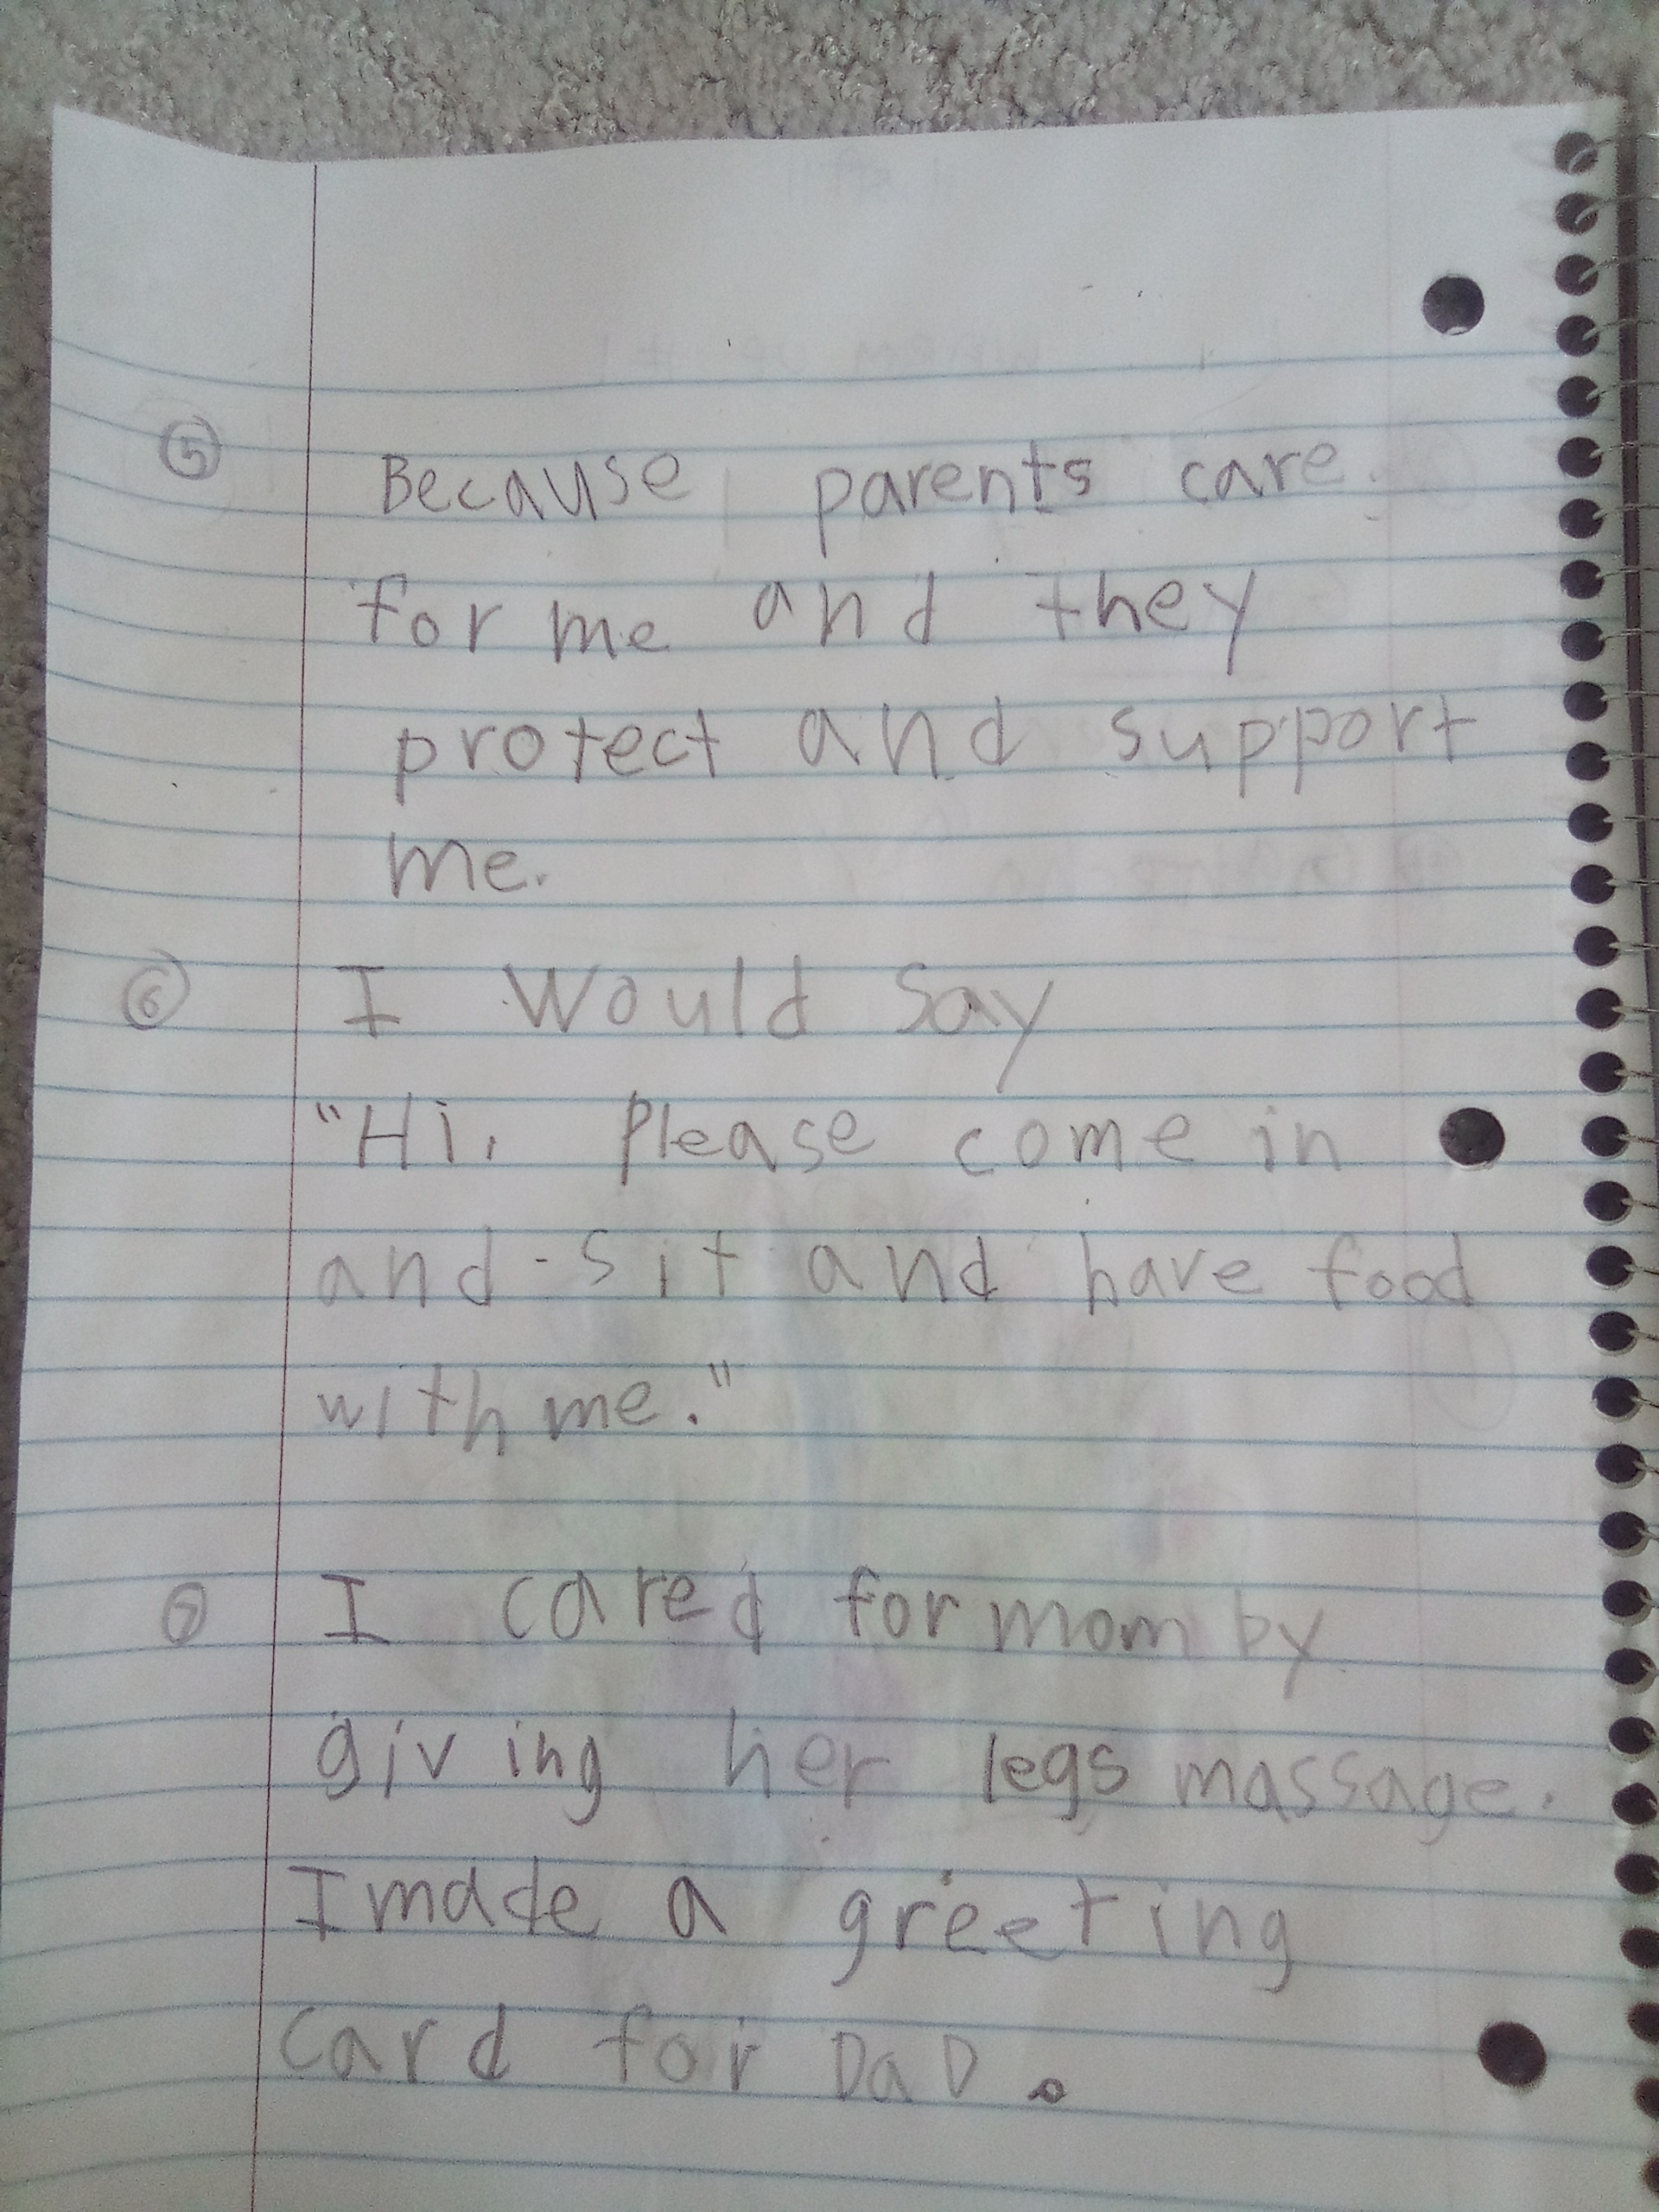 ⑤ Because parents care
for me and they
protect and support
me.
⑥ I would say
"Hi, Please come in
and sit and have food
with me."
⑦ I cared for mom by
giving her legs massage.
I made a greeting
card for DaD.